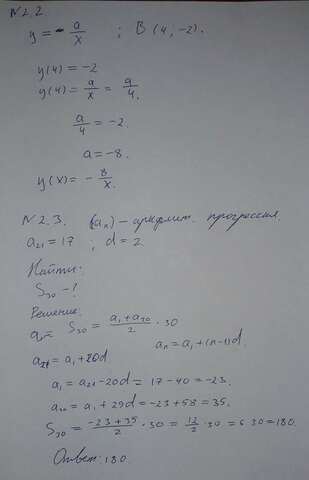 N2.2.
y = - a/x ; B (4, -2).
y(4) = -2
y(4) = a/x = a/4.
a/4 = -2.
a = -8.
y(x) = - 8/x.
N2.3. (an) - арифмет. прогрессия.
a21 = 17 ; d = 2
Найти:
S30 - ?
Решение:
S30 = (a1 + a30)/2 · 30
a21 = a1 + 20d an = a1 + (n-1)d.
a1 = a21 - 20d = 17 - 40 = -23.
a30 = a1 + 29d = -23 + 58 = 35.
S30 = (-23 + 35)/2 · 30 = 12/2 · 30 = 6 · 30 = 180.
Ответ: 180.